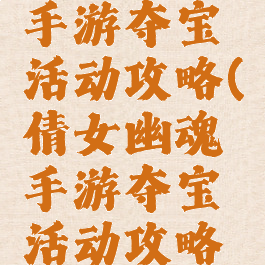 手游夺宝
活动攻略(
倩女幽魂
手游夺宝
活动攻略